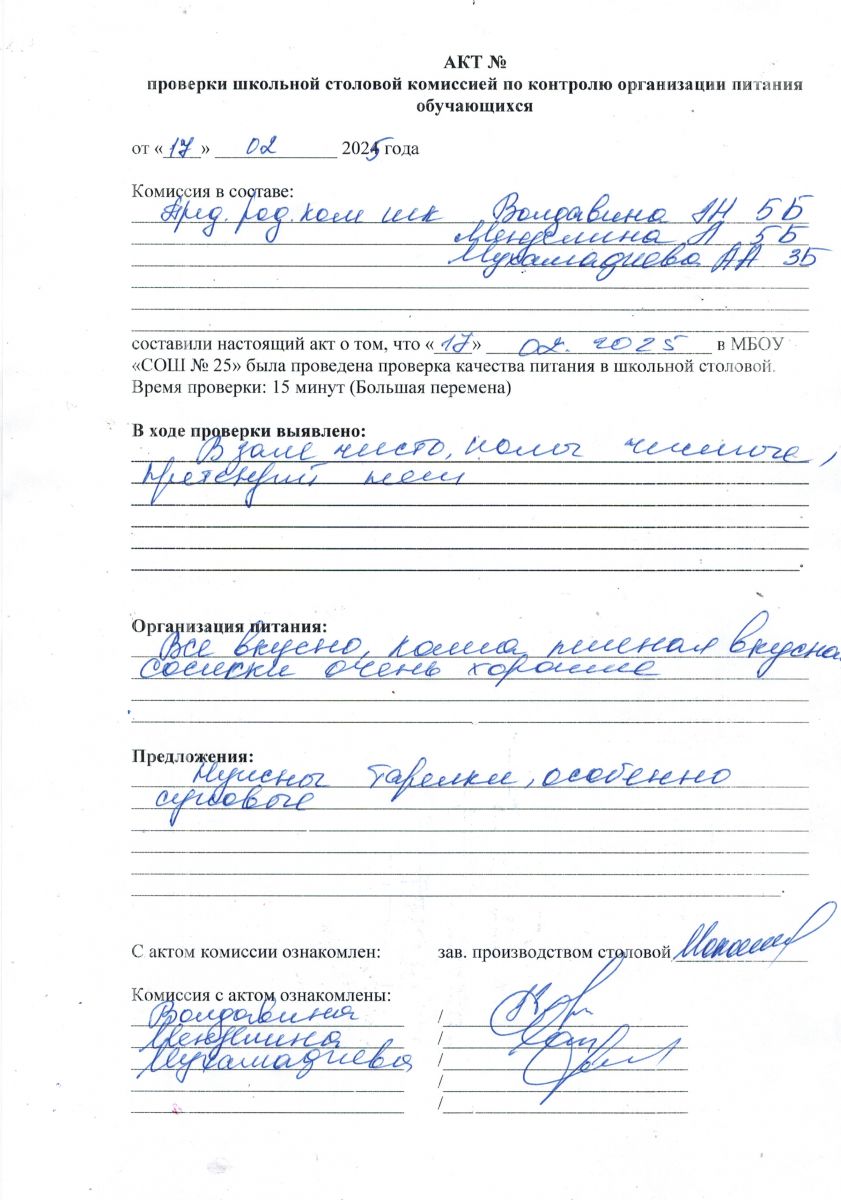 АКТ №
проверки школьной столовой комиссией по контролю организации питания
обучающихся
от «17» 02 2025 года
Комиссия в составе:
Пред. род. ком шк Волдавина 5Б
Менделина 5Б
Мухамадиева АА 3Б
составили настоящий акт о том, что «17» 02. 2025 в МБОУ
«СОШ № 25» была проведена проверка качества питания в школьной столовой.
Время проверки: 15 минут (Большая перемена)
В ходе проверки выявлено:
В зале чисто, полы чистые,
претензий нет
Организация питания:
Все вкусно, каша пшеная вкусная
сосиски очень хорошие
Предложения:
Нужны тарелки, особенно
суповые
С актом комиссии ознакомлен: зав. производством столовой
Комиссия с актом ознакомлены:
Волдавина /
Менделина /
Мухамадиева /
/
/